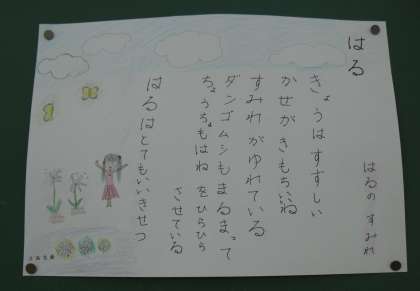 はる
はるの すみれ
きょうはすずしい
かぜがきもちいいね
すみれがゆれている
ダンゴムシもまるまって
ちょうちょもはねをひらひら
させている
はるはとてもいいきせつ